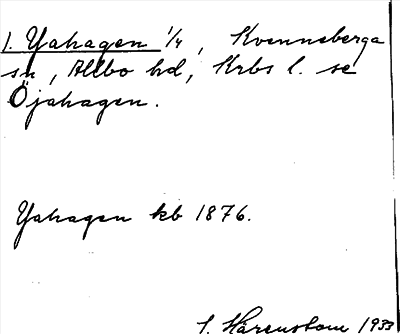 1. Yahagen 1/4, Kvenneberga
sn, Allbo hd, Krbs l. se
Öjahagen.
Yahagen kb 1876.
S. Härenstam 1933